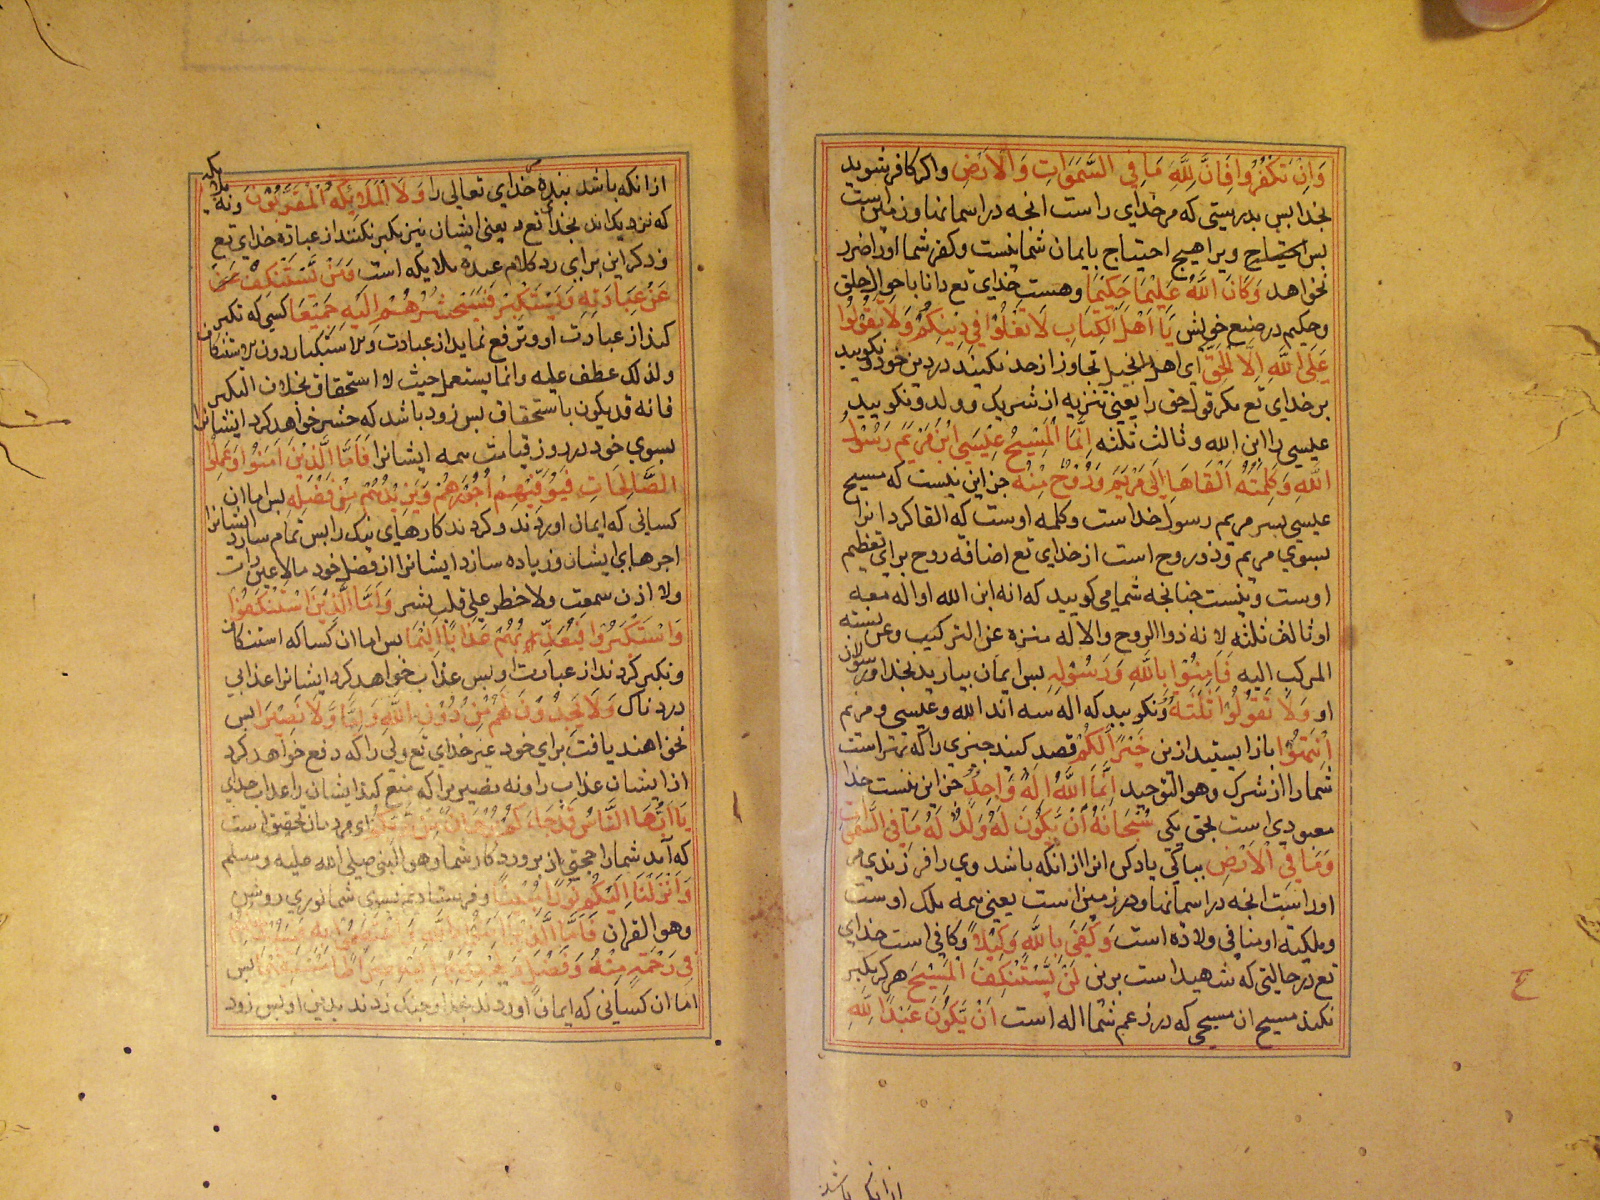 وَاِنْ تَكْفُرُوا فَاِنَّ لِلّٰهِ مَا فِي السَّمَوَاتِ وَالْاَرْضِ واكر كافر شويد
بخدا پس بدرستي كه مر خداي راست انچه در اسمانها و زمين است
پس احتياج ويرا هيچ احتياج بايمان شما نيست وكفر شما اورا ضرر
نخواهد وَكَانَ اللّٰهُ عَلِيْمًا حَكِيْمًا وهست خداي تع دانا باحوال خلق
وحكيم در صنع خويش يَا اَهْلَ الْكِتَابِ لَا تَغْلُوْا فِي دِيْنِكُمْ وَلَا تَقُوْلُوْا
عَلَى اللّٰهِ اِلَّا الْحَقَّ اي اهل انجيل تجاوز از حد نكنيد در دين خود ونكوييد
بر خداي تع مكر قول حق را يعني تنزيه از شريك و ولد ونكوييد
عيسي را ابن الله وثالث ثلثه اِنَّمَا الْمَسِيْحُ عِيْسَي ابْنُ مَرْيَمَ رَسُوْلُ
اللّٰهِ وَكَلِمَتُهُ اَلْقَاهَا اِلَى مَرْيَمَ وَرُوْحٌ مِنْهُ جز اين نيست كه مسيح
عيسي پسر مريم رسول خداست وكلمه اوست كه القا كرد انرا
بسوي مريم وذو روح است از خداي تع اضافه روح براي تعظيم
اوست ونيست چنانچه شما مي كوييد كه انه ابن الله او اله معه
او ثالث ثلثه لانه ذوا الروح والاله منزه عن التركيب وعن نسبته
المركب اليه فَاٰمِنُوْا بِاللّٰهِ وَرَسُوْلِهِ پس ايمان بياريد بخدا ورسولان
او وَلَا تَقُوْلُوْا ثَلٰثَةٌ ونكوييد كه اله سه اند الله وعيسي ومريم
اِنْتَهُوْا باز ايستيد ازين خَيْرًا لَكُمْ قصد كنيد چيزي را كه بهتر است
شما را از شرك وهو التوحيد اِنَّمَا اللّٰهُ اِلٰهٌ وَاحِدٌ جز اين نيست خدا
معبودي است بحق يكي سُبْحَانَهُ اَنْ يَّكُوْنَ لَهُ وَلَدٌ لَهُ مَا فِي السَّمٰوَاتِ
وَمَا فِي الْاَرْضِ بپاكي ياد كن انرا از انكه باشد وي را فرزندي مر
اوراست انچه در اسمانها ودر زمين است يعني همه ملك اوست
وملكيته او منافي ولاده است وَكَفٰي بِاللّٰهِ وَكِيْلًا وكافي است خداي
تع در حالتي كه شهيد است برين لَنْ يَّسْتَنْكِفَ الْمَسِيْحُ هركز تكبر
نكند مسيح ان مسيحي كه در زعم شما اله است اَنْ يَّكُوْنَ عَبْدًا لِلّٰهِ
از انكه باشد
از انكه باشد بنده خداي تعالي را وَلَا الْمَلٰئِكَةُ الْمُقَرَّبُوْنَ ونه ملايكه
كه نزديك اند بخداي تع يعني ايشان نيز تكبر نكنند از عباده خداي تع
وذكر اين براي رد كلام عبده ملايكه است وَمَنْ يَّسْتَنْكِفْ
عَنْ عِبَادَتِهِ وَيَسْتَكْبِرْ فَسَيَحْشُرُهُمْ اِلَيْهِ جَمِيْعًا كسي كه تكبر
كند از عبادت او وترفع نمايد از عبادت والاستكبار دون الاستنكاف
ولذلك عطف عليه وانما يستعمل حيث لا استحقاق بخلاف التكبر
فانه قد يكون باستحقاق پس زود باشد كه حشر خواهد كرد ايشانرا
بسوي خود در روز قيامت همه ايشانرا فَاَمَّا الَّذِيْنَ اٰمَنُوْا وَعَمِلُوا
الصَّالِحَاتِ فَيُوَفِّيْهِمْ اُجُوْرَهُمْ وَيَزِيْدُهُمْ مِنْ فَضْلِهِ پس اما ان
كساني كه ايمان اوردند وكردند كارهاي نيك را پس تمام سازد ايشانرا
اجرهاي ايشان وزياده سازد ايشانرا از فضل خود مالا عين رات
ولا اذن سمعت ولا خطر علي قلب بشر وَاَمَّا الَّذِيْنَ اسْتَنْكَفُوْا
وَاسْتَكْبَرُوْا فَيُعَذِّبُهُمْ عَذَابًا اَلِيْمًا پس اما ان كسا كه استنكاف
وتكبر كردند از عبادت او پس عذاب خواهد كرد ايشانرا عذابي
دردناك وَلَا يَجِدُوْنَ لَهُمْ مِنْ دُوْنِ اللّٰهِ وَلِيًّا وَّلَا نَصِيْرًا پس
نخواهند يافت براي خود غير خداي تع ولي را كه دفع خواهد كرد
از ايشان عذاب را ونه نصيريرا كه منع كند ايشان را عذاب خداي
يَا اَيُّهَا النَّاسُ قَدْ جَاءَكُمْ بُرْهَانٌ مِّنْ رَّبِّكُمْ اي مردمان تحقيق است
كه آمد شمارا حجتي از پروردكار شما وهو النبي صلي الله عليه وسلم
وَاَنْزَلْنَا اِلَيْكُمْ نُوْرًا مُّبِيْنًا وفرستاديم بسوي شما نوري روشن
وهو القران فَاَمَّا الَّذِيْنَ اٰمَنُوْا بِاللّٰهِ وَاعْتَصَمُوْا بِهِ فَسَيُدْخِلُهُمْ
فِي رَحْمَةٍ مِنْهُ وَفَضْلٍ وَيَهْدِيْهِمْ اِلَيْهِ صِرَاطًا مُّسْتَقِيْمًا پس
اما ان كساني كه ايمان اوردند بخدا وچنك زدند بدين او پس زود